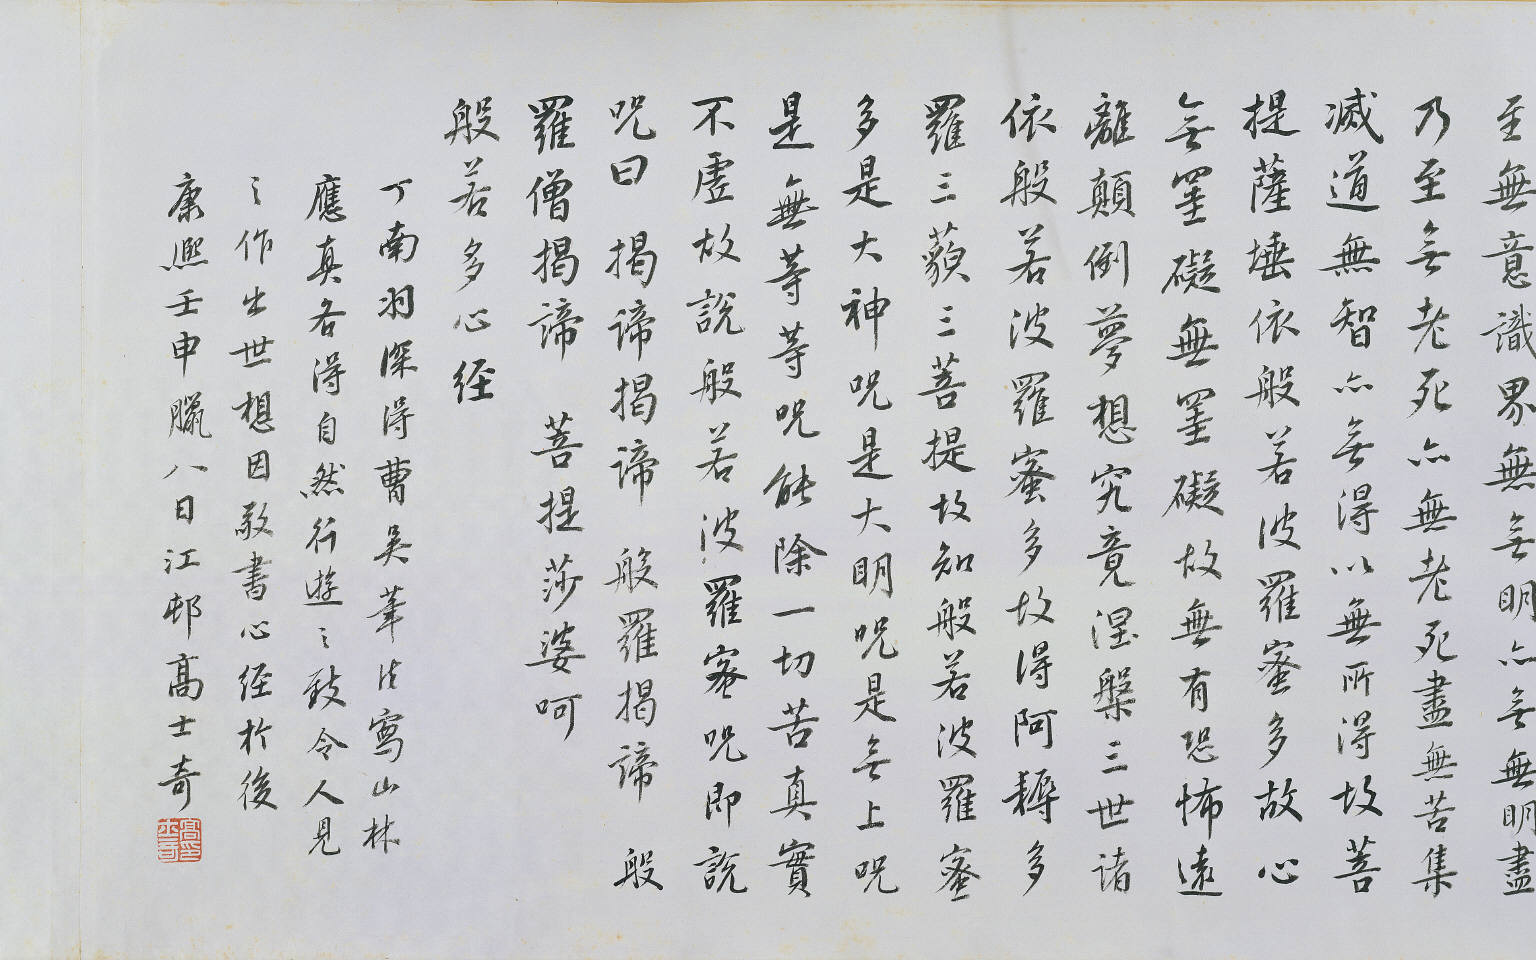 至無意識界無無明亦無無明盡
乃至無老死亦無老死盡無苦集
滅道無智亦無得以無所得故菩
提薩埵依般若波羅蜜多故心
無罣礙無罣礙故無有恐怖遠
離顛倒夢想究竟涅槃三世諸
依般若波羅蜜多故得阿耨多
羅三藐三菩提故知般若波羅蜜
多是大神呪是大明呪是無上呪
是無等等呪能除一切苦真實
不虛故說般若波羅蜜呪即說
呪曰揭諦揭諦 般羅揭諦 般
羅僧揭諦 菩提莎婆呵
般若多心経
丁南羽深得曹吳筆法寫山林
應真各得自然行遊之致令人見
之作出世想因敬書心経於後
康熙壬申臘八日江邨高士奇
高士奇印